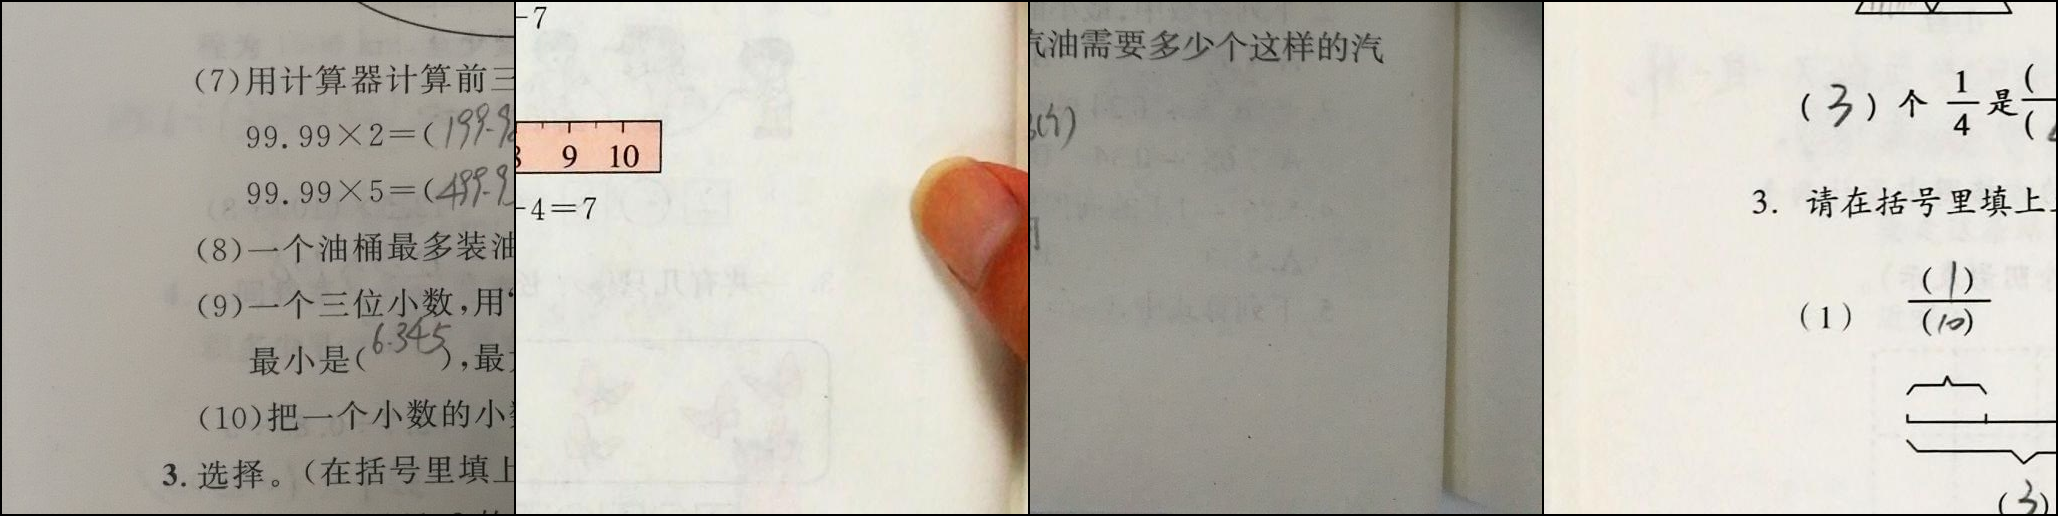 (7)用计算器计算前三
99.99×2=(199.9
99.99×5=(499.9
(8)一个油桶最多装油
(9)一个三位小数,用“
最小是(6.345),最
(10)把一个小数的小
3. 选择。(在括号里填上
-7
9 10
-4=7
汽油需要多少个这样的汽
(个)
(3)个 1/4 是 (
3. 请在括号里填上
(1) (1)/(10)
(3)